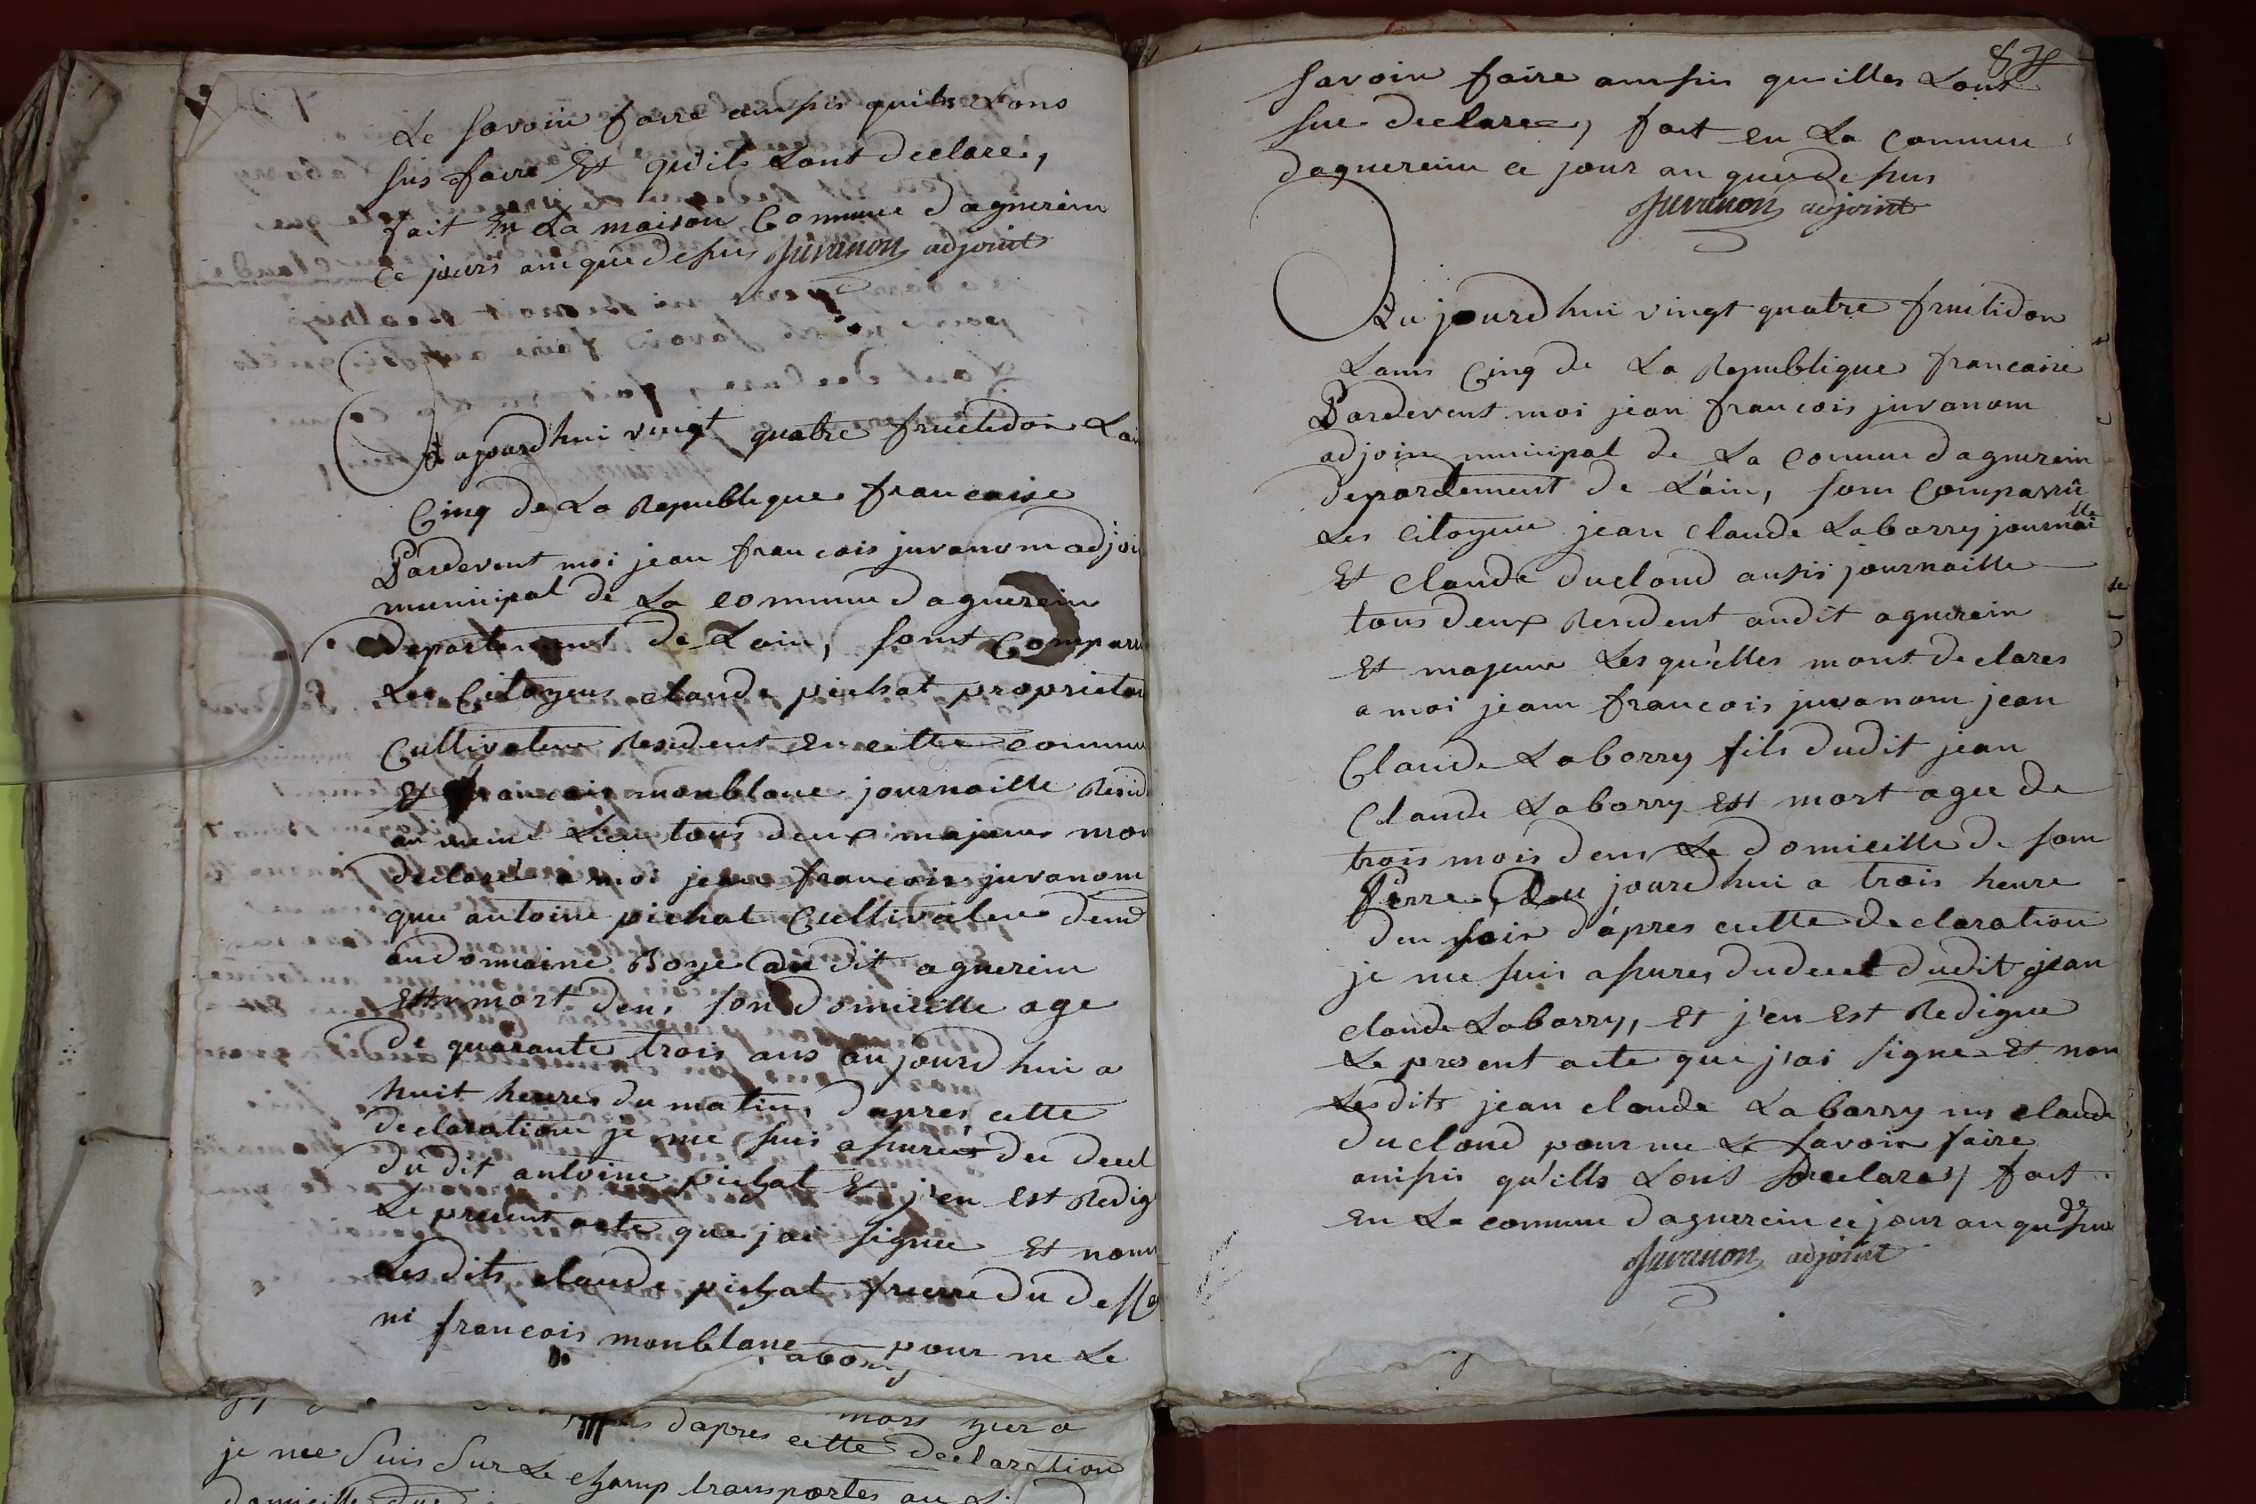 Le savoir faire ainsis quils Lons
sus faire Et qu'ils Lont declare,
fait En La maison Commune d aguereim
Ce jours ans que desus Juvanon adjoint
Aujourdhui vingt quatre fructidor Lan
Cinq de La Republique francaise
Pardevent moi jean francois juvanom adjoi
municipal de La commune d aguereim
departement de Lain, sont Comparu
Les Citoyens claude pichat proprietai
Cultivateur Resident En cette commu
Et francois monblanc journaille Resid
au meme Lieu tous deux majeurs mon
declaré a moi jean francois juvanom
que antoine pichat Cultivateur dem
au domaine Roye au dit aguereim
Est mort dens son domicille age
de quarante trois ans aujourd hui a
huit heures du matin, dapres cette
declaration je me suis assures du decet
du dit antoine pichat Et j'en Est Redig
Le present acte que jai signee Et nom
Lesdits claude pichat frerre du deffe
ni francois monblanc pour ne Le
mors hier a
dapres cette declaration
je me suis sur Le champ transportes au
87
savoir faire ainsis quilles Lont
sue declaree, fait en La commune
daguereim ce jour an que de sus
Juvanon adjoint
Aujourd hui vingt quatre fructidor
Lans Cinq de La Republique francaise
Pardevent moi jean francois juvanom
adjoin municipal de La commune d aguereim
departement de L'ain, som Comparru
Les citoyens jean claude Laborry journaille
Et claude ducloud ausis journaille
tous deux Resident audit aguereim
Et majeurs Lesqu'elles mont declares
a moi jeam francois juvanom jean
Claude Laborry fils dudit jean
Claude Laborry Est mort agee de
trois mois dens Le domicille de som
Perre, dau jourd hui a trois heure
du soir d'apres cette declaration
je me suis assures du decet dudit jean
claude Laborry, Et j'en Est Redigee
Le present acte que j'ai signe Et non
Lesdits jean claude Laborry nis claude
ducloud pour ne Le savoir faire
ainsis qu'ills Lons declares, fait
En La commune d aguereim ce jour an que desus
Juvanon adjoint